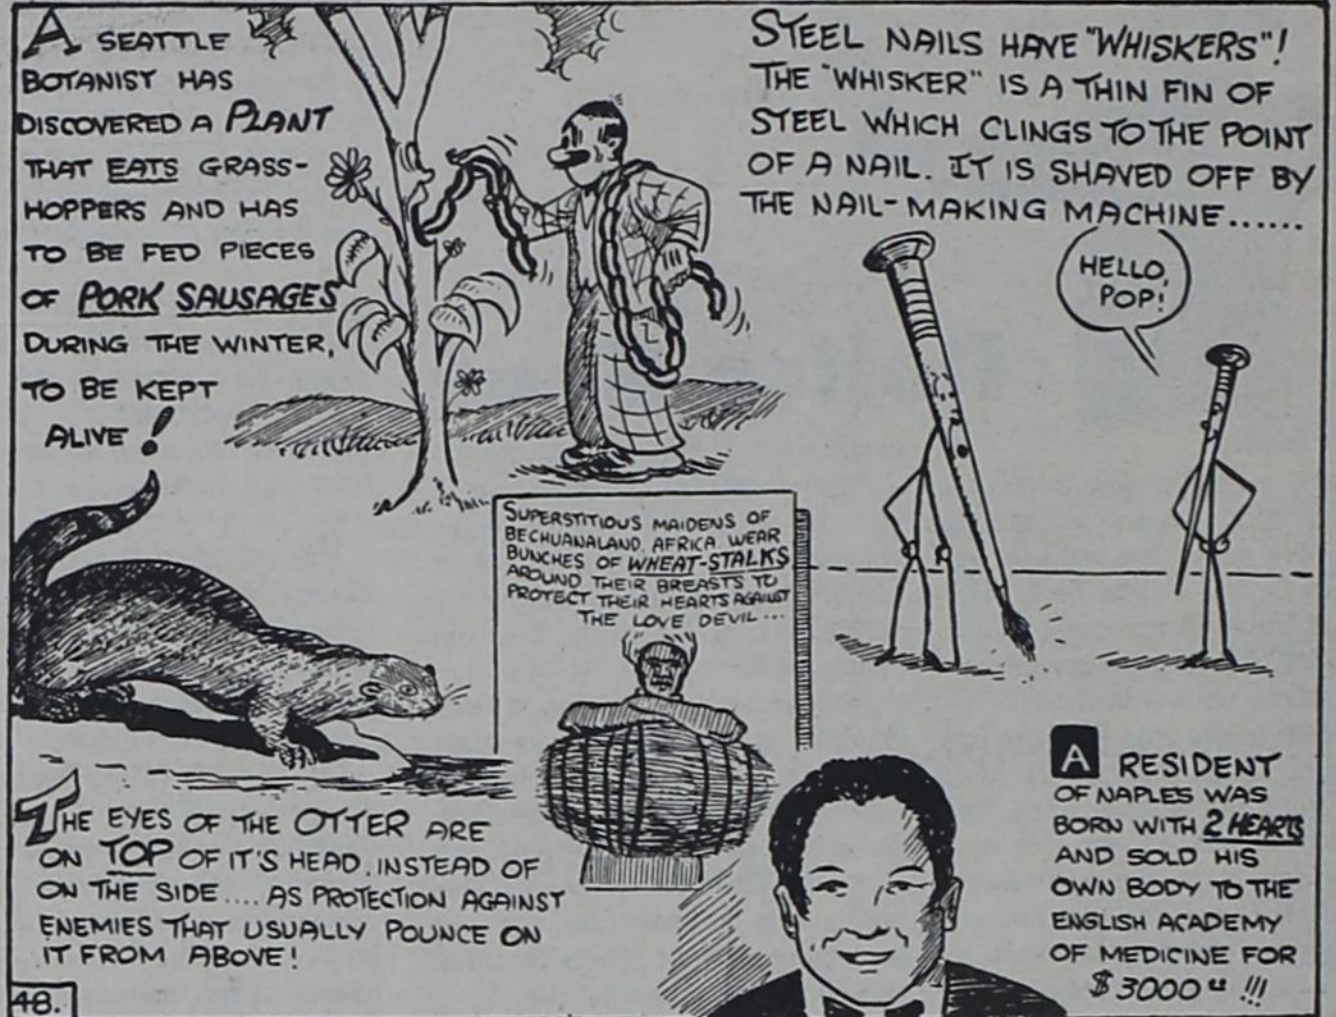 A SEATTLE
BOTANIST HAS
DISCOVERED A PLANT
THAT EATS GRASS-
HOPPERS AND HAS
TO BE FED PIECES
OF PORK SAUSAGES
DURING THE WINTER,
TO BE KEPT
ALIVE!
STEEL NAILS HAVE "WHISKERS"!
THE "WHISKER" IS A THIN FIN OF
STEEL WHICH CLINGS TO THE POINT
OF A NAIL. IT IS SHAVED OFF BY
THE NAIL-MAKING MACHINE......
HELLO,
POP!
SUPERSTITIOUS MAIDENS OF
BECHUANALAND, AFRICA WEAR
BUNCHES OF WHEAT-STALKS
AROUND THEIR BREASTS TO
PROTECT THEIR HEARTS AGAINST
THE LOVE DEVIL...
THE EYES OF THE OTTER ARE
ON TOP OF IT'S HEAD, INSTEAD OF
ON THE SIDE.... AS PROTECTION AGAINST
ENEMIES THAT USUALLY POUNCE ON
IT FROM ABOVE!
A RESIDENT
OF NAPLES WAS
BORN WITH 2 HEARTS
AND SOLD HIS
OWN BODY TO THE
ENGLISH ACADEMY
OF MEDICINE FOR
$3000 !!!
48.